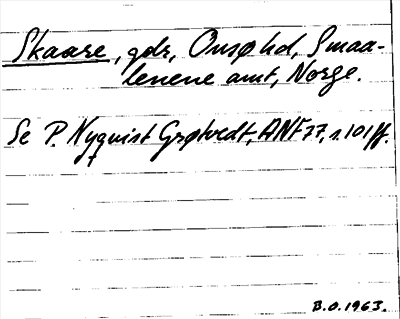 Skaare, gdr, Onsø hd, Smaa-
lenene amt, Norge.
Se P. Nyquist Grøtvedt, ANF 77, s. 101 ff.
B.O. 1963.